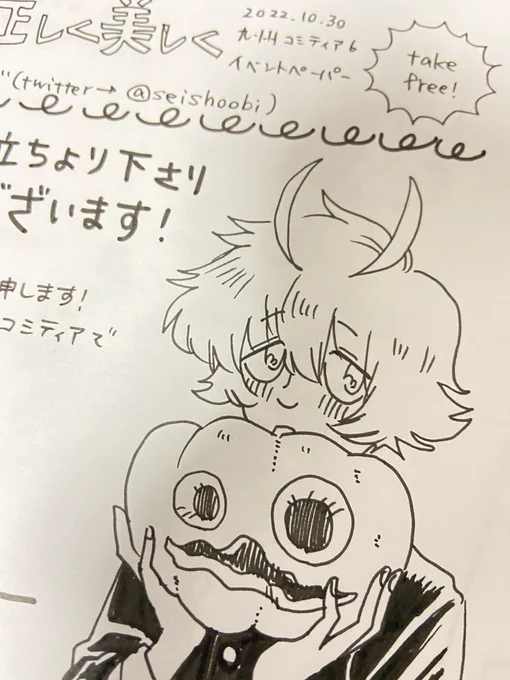 正しく美しく
2022.10.30
九州コミティア6
イベントペーパー
take
free!
"(twitter→ @seishoobi)
立ちより下さり
ございます!
申します!
コミティアで